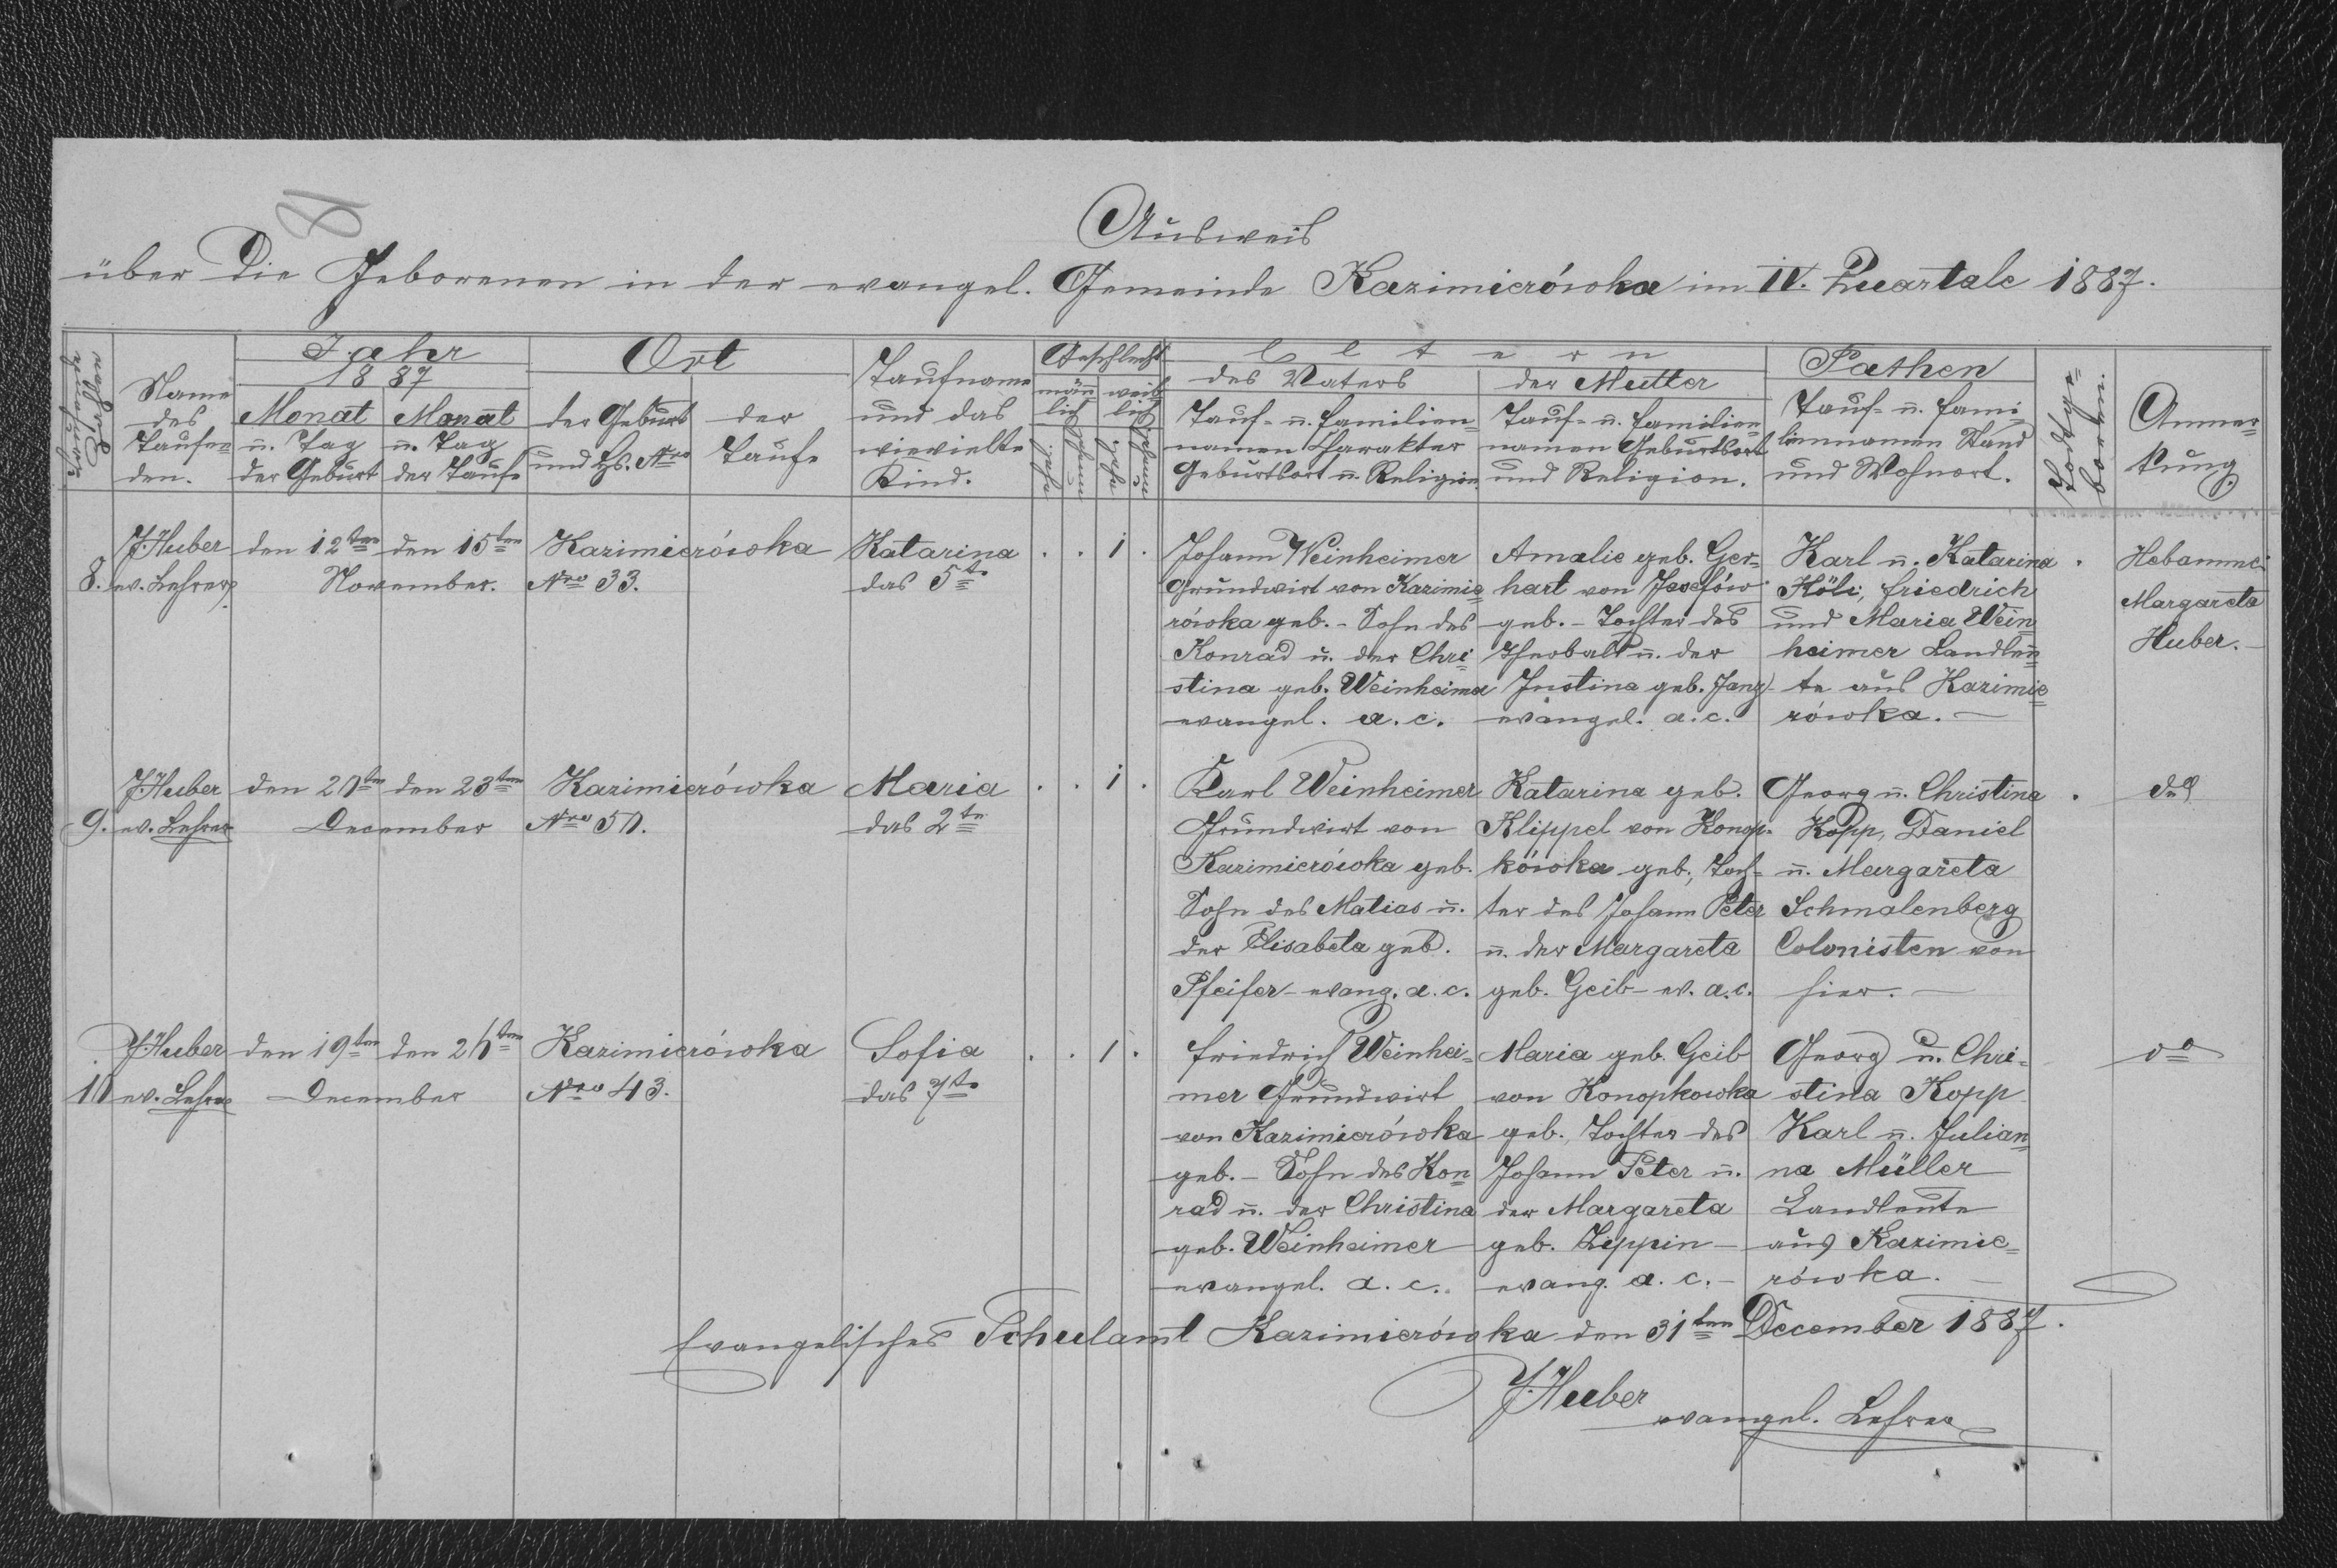 Ausweis
über die Geborenen in der evangel. Gemeinde Kazimierówka im IV. Quartale 1887.
Name des Taufen=
den.
Jahr
1887
Monat
u. Tag
der Geburt
Monat
u. Tag
der Taufe
Ort
der Geburt
und Hs. Nro
der
Taufe
Taufname
und das
wievielte
Kind.
Geschlecht
män
lich
weib
lich
Eltern
des Vaters
Tauf- u. Familien=
namen Charakter
Geburtsort u. Religion.
der Mutter
Tauf- u. Familien=
namen Geburtsort
und Religion.
Pathen
Tauf- u. Fami
liennamen Stand
und Wohnort.
Anmer=
kung.
8.
J. Huber
ev. Lehrer
den 12ten den 15ten
November.
Kazimierówka
Nro 33.
Katarina
das 5te
. . 1 .
Johann Weinheimer
Grundwirt von Kazimie=
rówka geb. - Sohn des
Konrad u. der Chri=
stina geb. Weinheimer
evangel. a. c.
Amalie geb. Ger=
hart von Josefów
geb. - Tochter des
Theobald u. der
Justina geb. Janz
evangel. a. c.
Karl u. Katarina
Köli, Friedrich
und Maria Wein=
heimer Landleu=
te aus Kazimie=
rówka. —
Hebamme:
Margareta
Huber. —
9.
J. Huber
ev. Lehrer
den 20ten den 23ten
December
Kazimierówka
Nro 50.
Maria
das 2te
. . 1 .
Karl Weinheimer
Grundwirt von
Kazimierówka geb.
Sohn des Matias u.
der Elisabeta geb.
Pfeifer - evang. a. c.
Katarina geb.
Klippel von Konop=
kówka geb., Toch=
ter des Johann Peter
u. der Margareta
geb. Geib - ev. a. c.
Georg u. Christina
Kopp, Daniel
u. Margareta
Schmalenberg
Colonisten von
hier. —
dto
10
J. Huber
ev. Lehrer
den 19ten den 26ten
December
Kazimierówka
Nro 43.
Sofia
das 7te
. . 1 .
Friedrich Weinhei=
mer Grundwirt
von Kazimierówka
geb. - Sohn des Kon=
rad u. der Christina
geb. Weinheimer
evangel. a. c.
Maria geb. Geib
von Konopkowka
geb., Tochter des
Johann Peter u.
der Margareta
geb. Zippin -
evang. a. c. -
Georg u. Chri=
stina Kopp
Karl u. Julian=
na Müller
Landleute
aus Kazimie=
rówka. —
do
Evangelisches Schulamt Kazimierówka den 31ten December 1887.
J. Huber
evangel. Lehrer